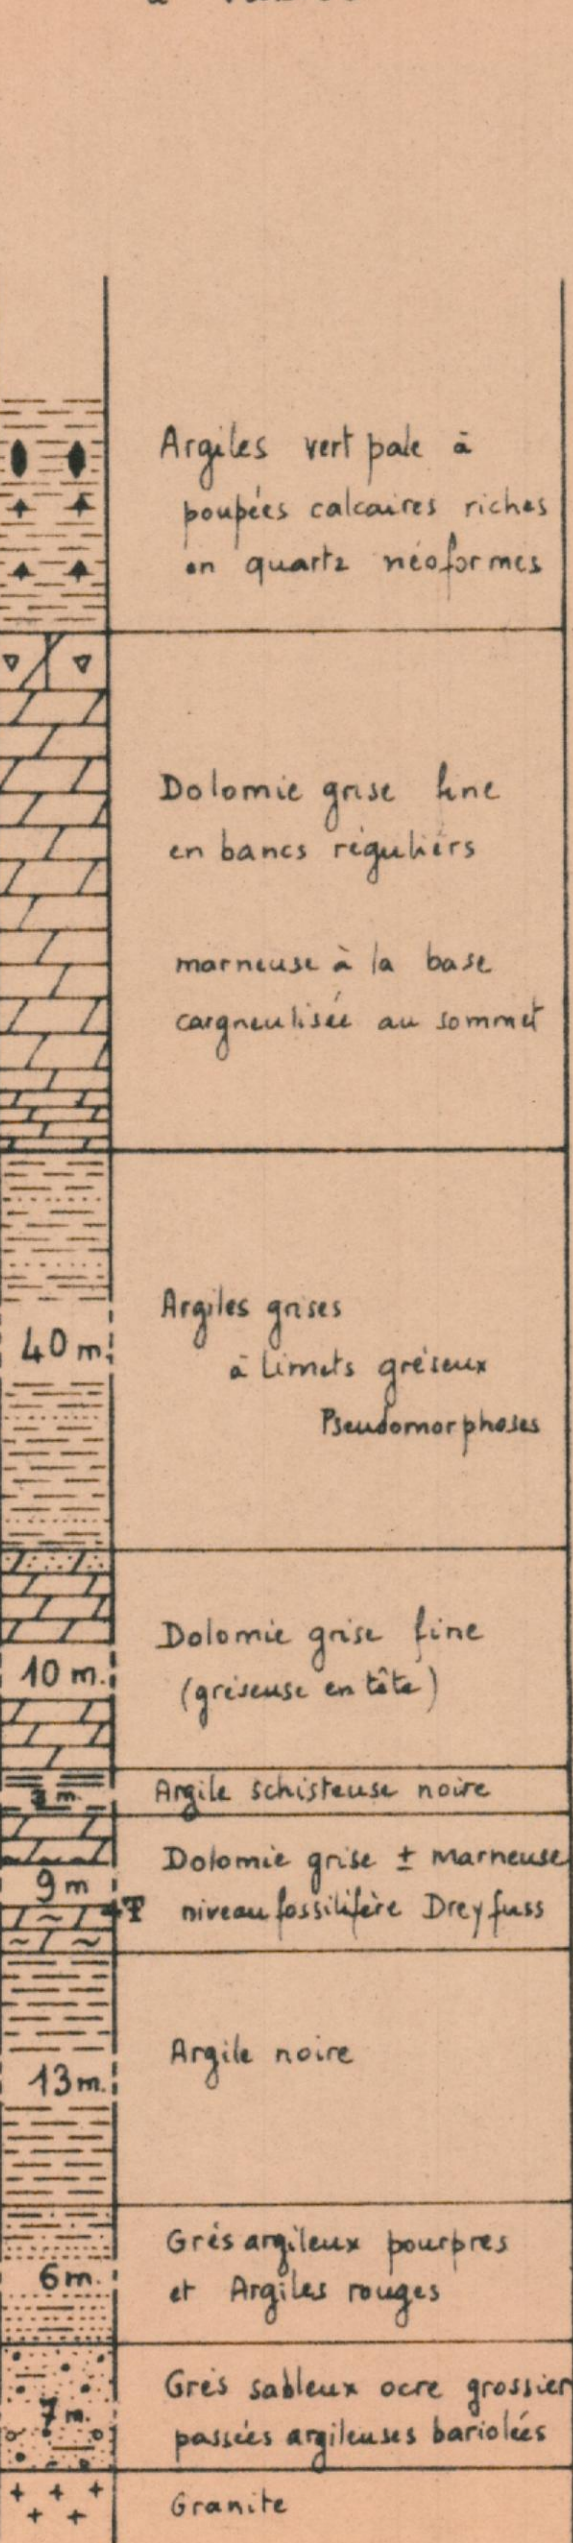 Argiles vert pale à
poupées calcaires riches
en quartz néoformes
Dolomie grise fine
en bancs réguliers
marneuse à la base
cargneulisée au sommet
Argiles grises
40 m.
à limets gréseux
Pseudomorphoses
Dolomie grise fine
10 m.
(gréseuse en tête)
Argile schisteuse noire
m.
Dolomie grise ± marneuse
9 m
niveau fossilifère Dreyfuss
Argile noire
13 m.
Grés argileux pourpres
6 m.
et Argiles rouges
Grés sableux ocre grossier
7 m.
passées argileuses bariolées
Granite